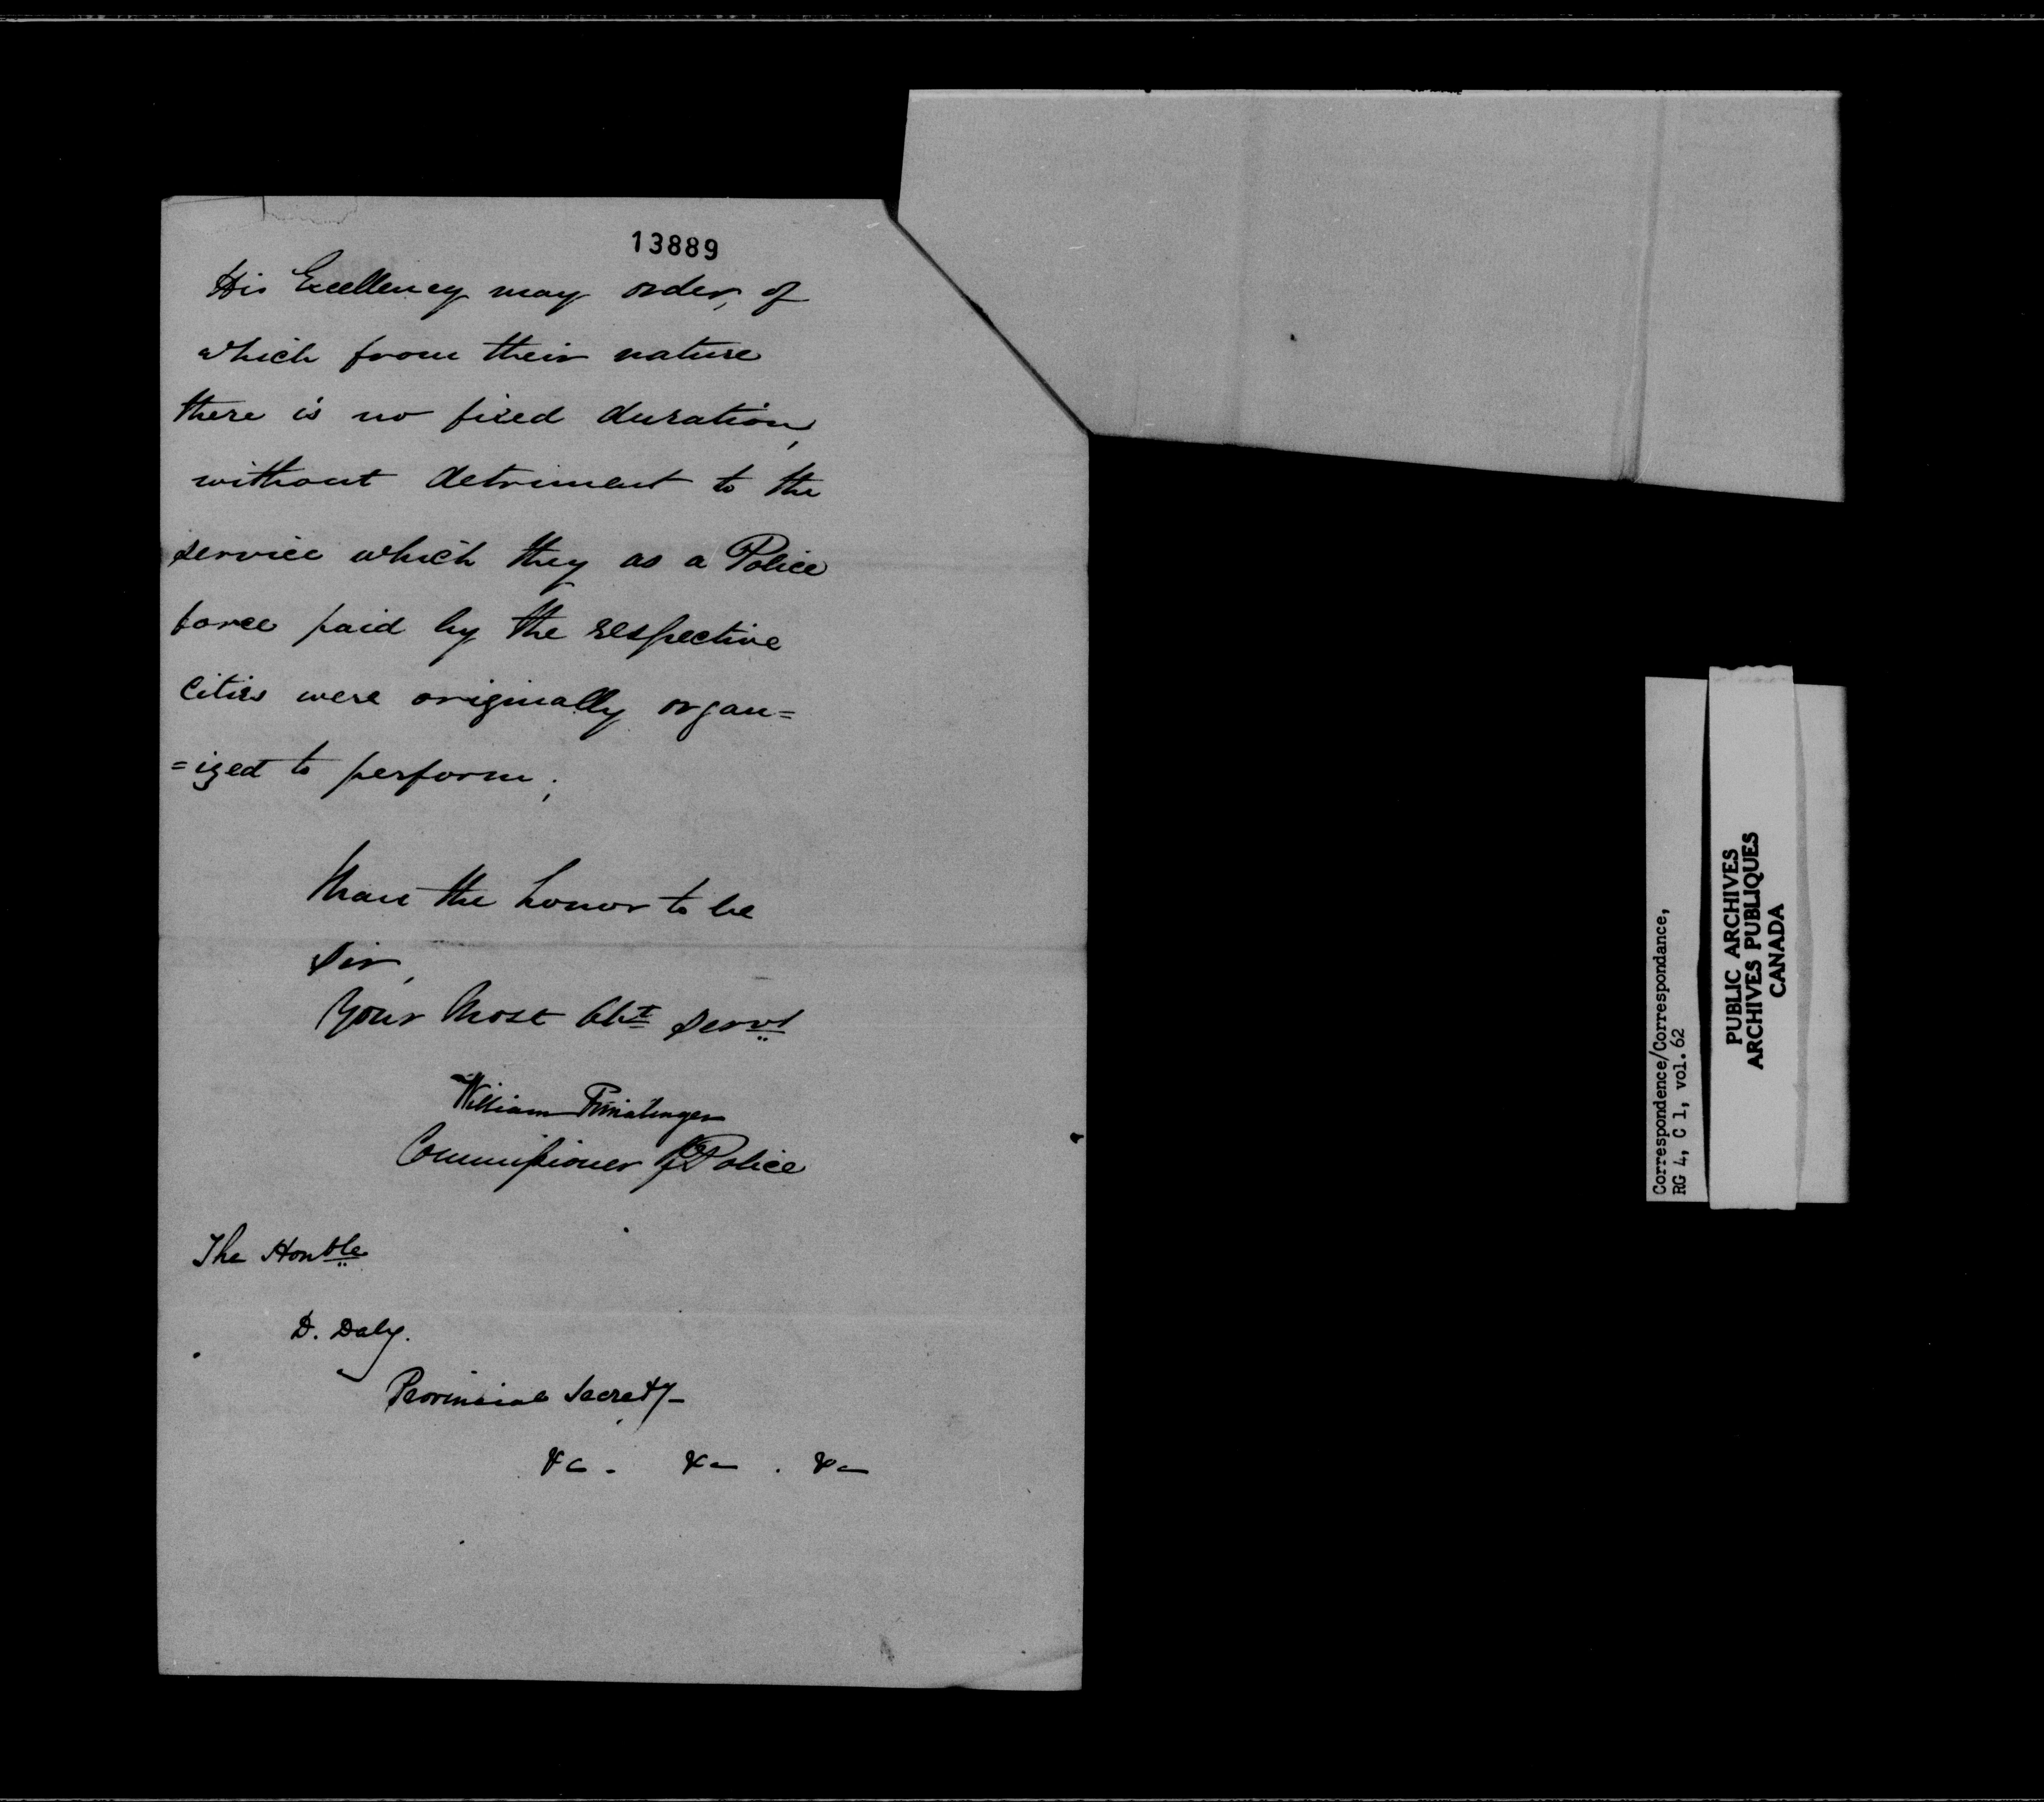 13889
His Excellency may order, of
which from their nature
there is no fixed duration,
without detriment to the
service which they as a Police
force paid by the respective
Cities were originally organ=
=ized to perform;
I have the honor to be
Sir,
Your Most Obt Servt
William Ermatinger
Commissioner of Police
The Honble
D. Daly.
Provincial Secrety-
&c. &c. &c
Correspondence/Correspondance,
RG 4, C 1, vol. 62
PUBLIC ARCHIVES
ARCHIVES PUBLIQUES
CANADA